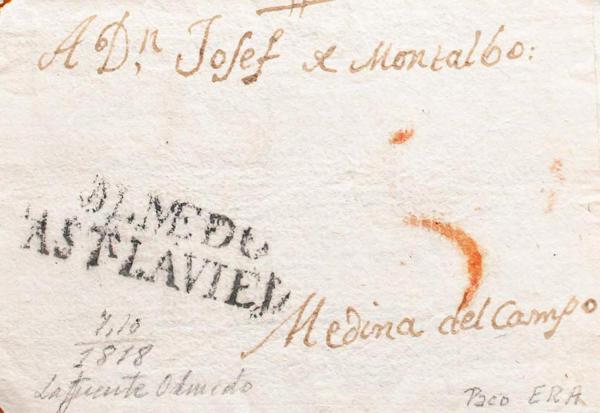 A Dn. Josef de Montalbo:
OLMEDO
CASTLLAVIEJ
Medina del Campo
7,10
1818
Lafuente Olmedo
Paco ERA